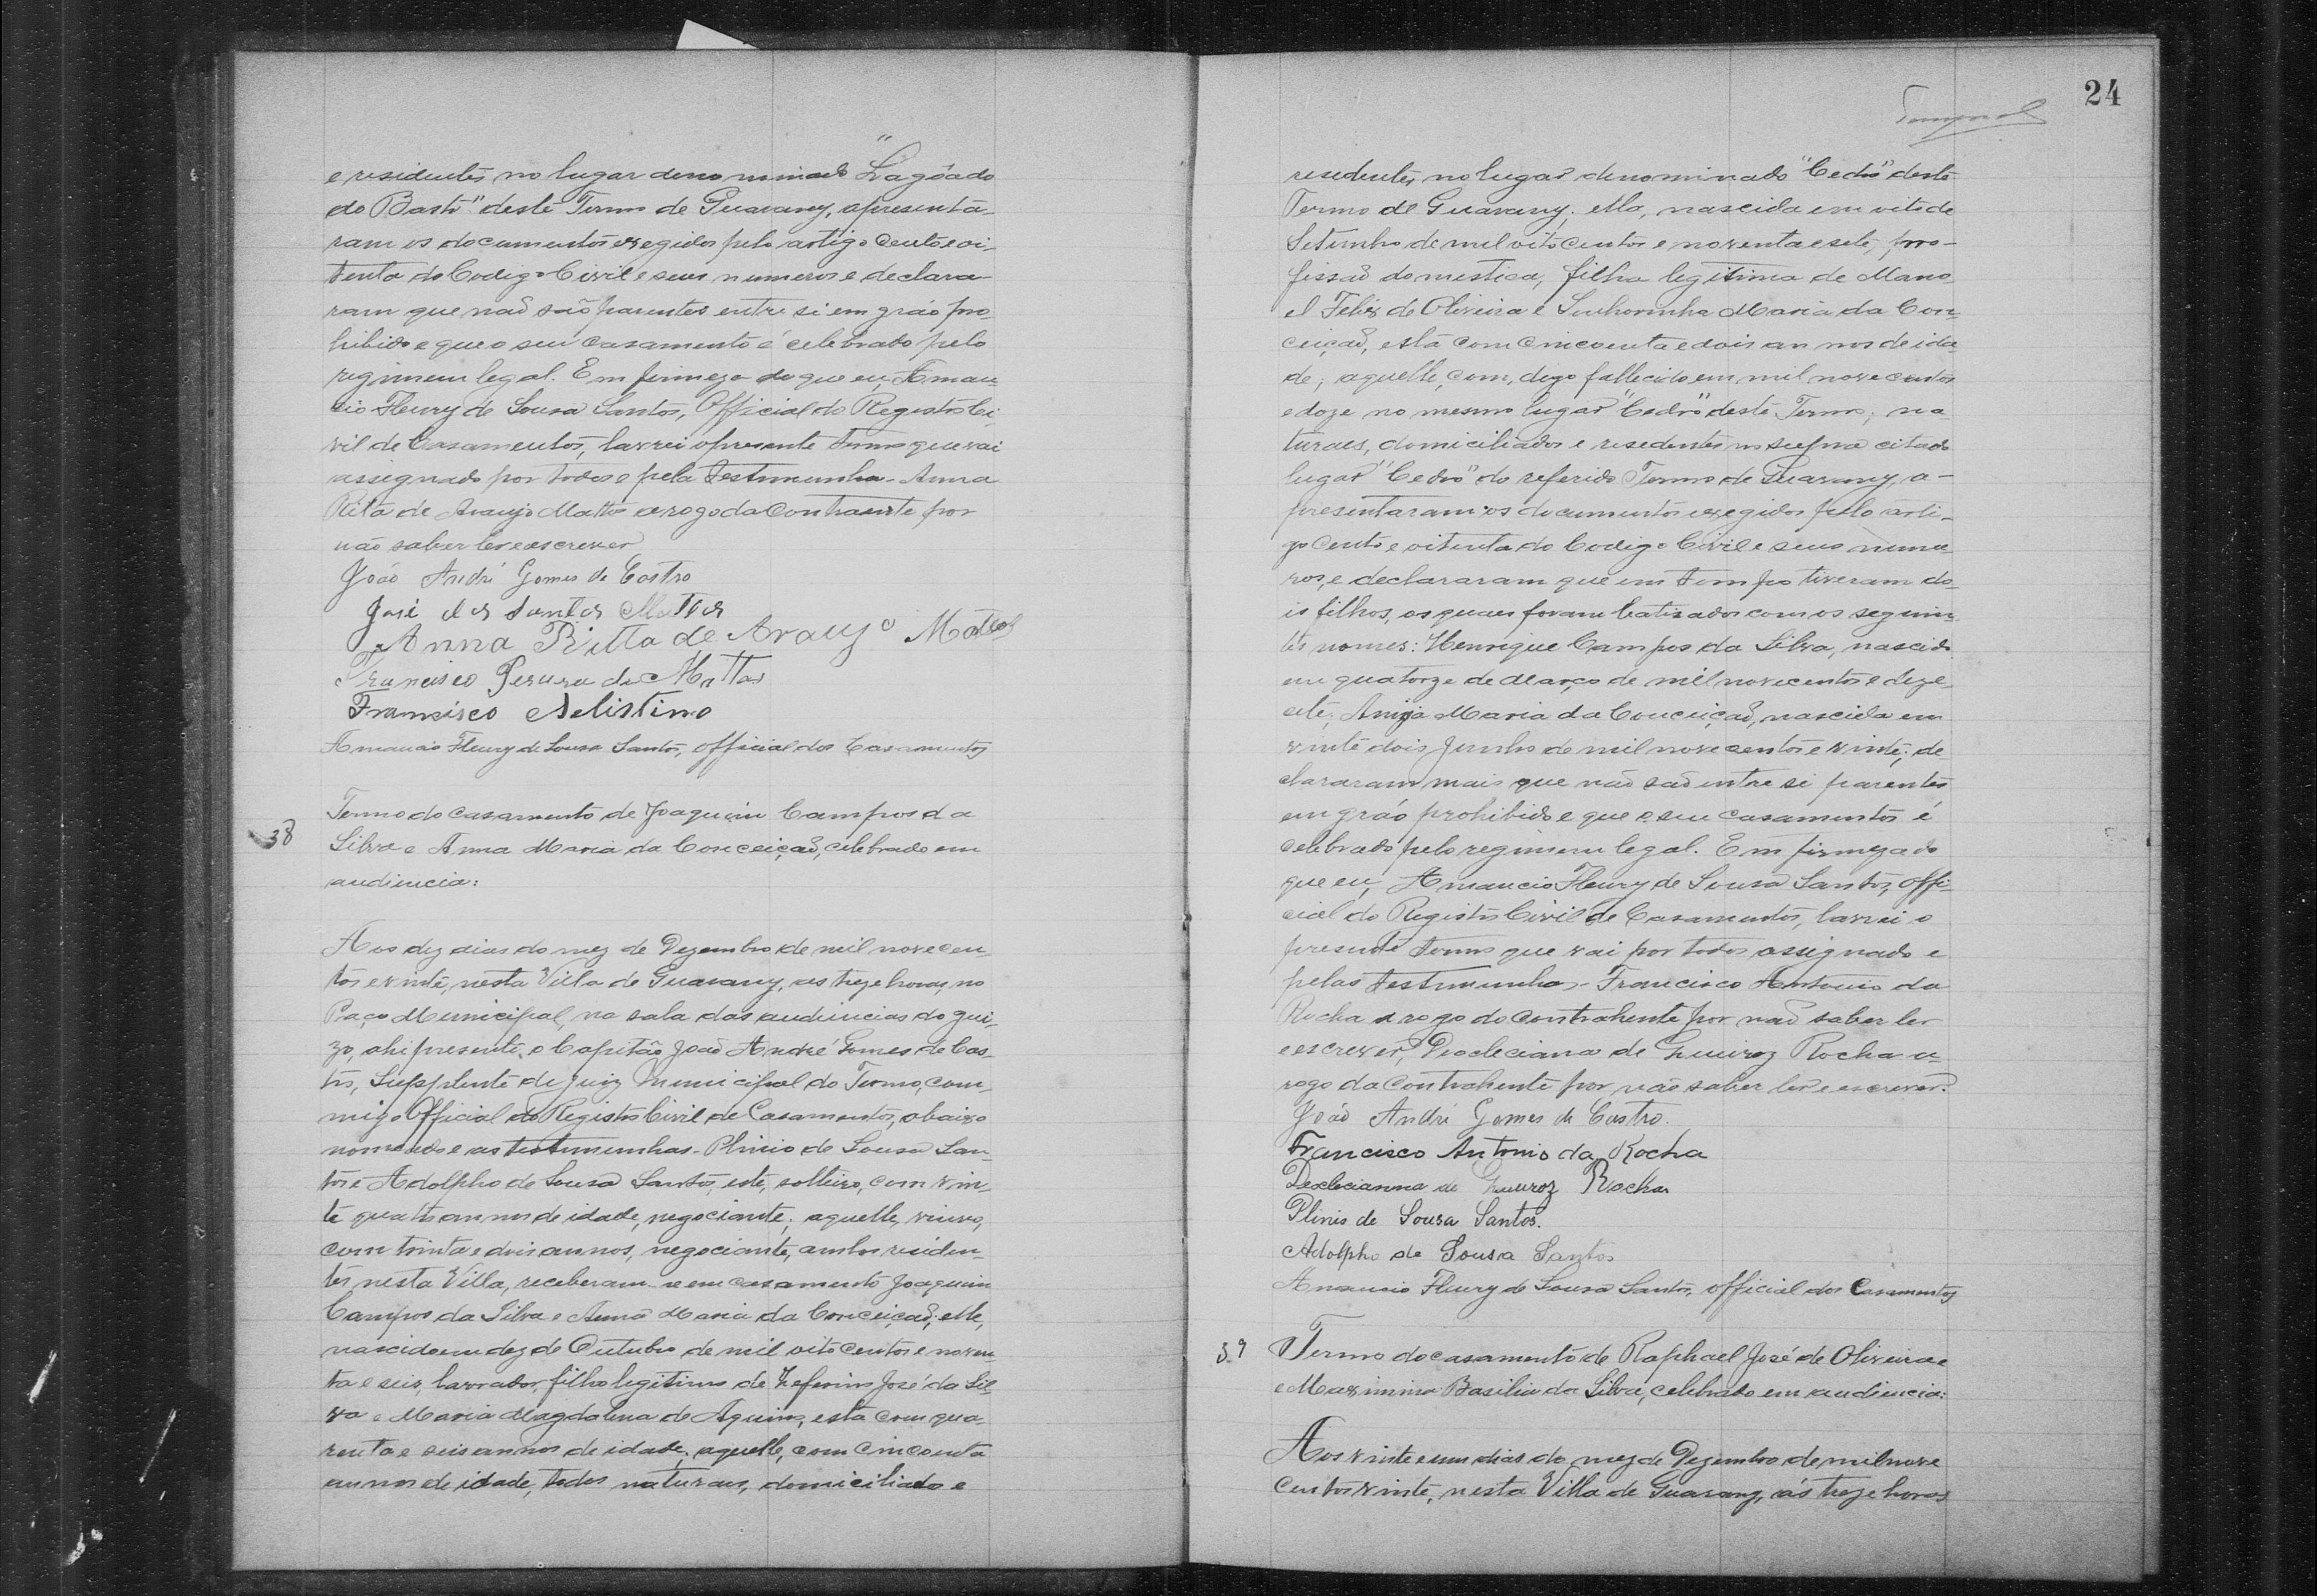 e residentes no lugar denominado "Lagôa do
do Basto" deste Termo de Guarany, apresenta-
ram os documentos exegidos pelo artigo cento e oi-
tenta do Codigo Civil e seus numeros e declara-
ram que naõ são parentes entre si em gráo pro-
hibido e que o seu casamento é celebrado pelo
regimem legal. Em firmeza do que eu, Aman-
cio Fleury de Sousa Santos, Official do Registro Ci-
vil de Casamentos, lavrei o presente termo que vai
assegnado por todos e pela testimunha - Anna
Rita de Araujo Mattos a rogo da Contraente por
não saber ler e escrever
João André Gomes de Castro
José dos Santos Mattos
Anna Ritta de Araujo Mattos
Francisco Perera de Mattos
Framsisco Selistino
Amancio Fleury de Sousa Santos, official dos Casamentos
38
Termo do casamento de Joaquim Campos da
Silva e Anna Maria da Conceiçaõ, celebrado em
audiencia:
Aos dez dias do mez de Dezembro de mil novecen-
tos e vinte, nesta Villa de Guarany, as treze horas, no
Paço Municipal, na sala das audiencias do jui-
zo, ahi presente o Capitão João André Gomes de Cas-
tro, Supplente de Juiz Municipal do Termo, com-
migo Official do Registro Civil de Casamentos, abaixo
nomeado e as testimunhas - Plinio de Sousa San-
tos e Adolpho de Sousa Santos, este, solteiro, com vin-
te quatro annos de idade, negociante; aquelle, viuvo,
com trinta e dois annos, negociante, ambos residen-
tes nesta Villa, receberam-se em casamento Joaquim
Campos da Silva e Anna Maria da Conceiçaõ; elle,
nascido em dez de Outubro de mil oito centos e noven-
ta e seis, lavrador, filho legitimo de Zeferino José da Sil-
va e Maria Magdalena de Aquino, esta com qua-
renta e seis annos de idade, aquelle, com cincoenta
annos de idade, todos naturaes, domiciliado e
24
resedentes no lugar denominado "Cedro" deste
Termo de Guarany; ella, nascida em oito de
Setembro de mil oito centos e noventa e sete, pro-
fissaõ domestica, filha legitima de Mano-
el Felix de Oliveira e Senhorinha Maria da Con-
ceiçaõ, esta com cincoenta e dois annos de ida-
de; aquelle, com, digo fallecido em mil nove centos
e doze no mesmo lugar "Cedro" deste Termo; na
turaes, domiciliados e resedentes no supra citado
lugar "Cedro" do referido Termo de Guarany, a-
presentaram os documentos exegidos pelo arti-
go cento e oitenta do Codigo Civil e seus nume-
ros, e declararam que em tempo tiveram do-
is filhos, os quaes foram batisados com os seguin-
tes nomes: Henrique Campos da Silva, nascido
em quatorze de Março de mil novecentos e deze-
sete, Maria da Conceiçaõ, nascida em
vinte dois Junho de mil nove centos e vinte; de
clararam mais que naõ saõ entre si parentes
em gráo prohibido e que o seu casamento é
celebrado pelo regimem legal. Em firmeza do
que eu, Amancio Fleury de Sousa Santos, Offi-
cial do Registro Civil de Casamentos, lavrei o
presente termo que vai por todos assignado e
pelas testimunhas - Francisco Antonio da
Rocha a rogo do contrahente por naõ saber ler
e escrever, Deocleciana de Queiroz Rocha a
rogo da contrahente por não saber ler e escrever.
João André Gomes de Castro.
Francisco Antonio da Rocha
Deoclecianna de Queuroz Rocha
Plinio de Sousa Santos.
Adolpho de Sousa Santos
Amancio Fleury de Sousa Santos, official dos Casamentos
39
Termo do casamento de Raphael José de Oliveira e
e Maximina Basilia da Silva, celebrado em audiencia:
Aos vinte e um dias do mez de Dezembro de mil nove
centos vinte, nesta Villa de Guarany, ás treze horas